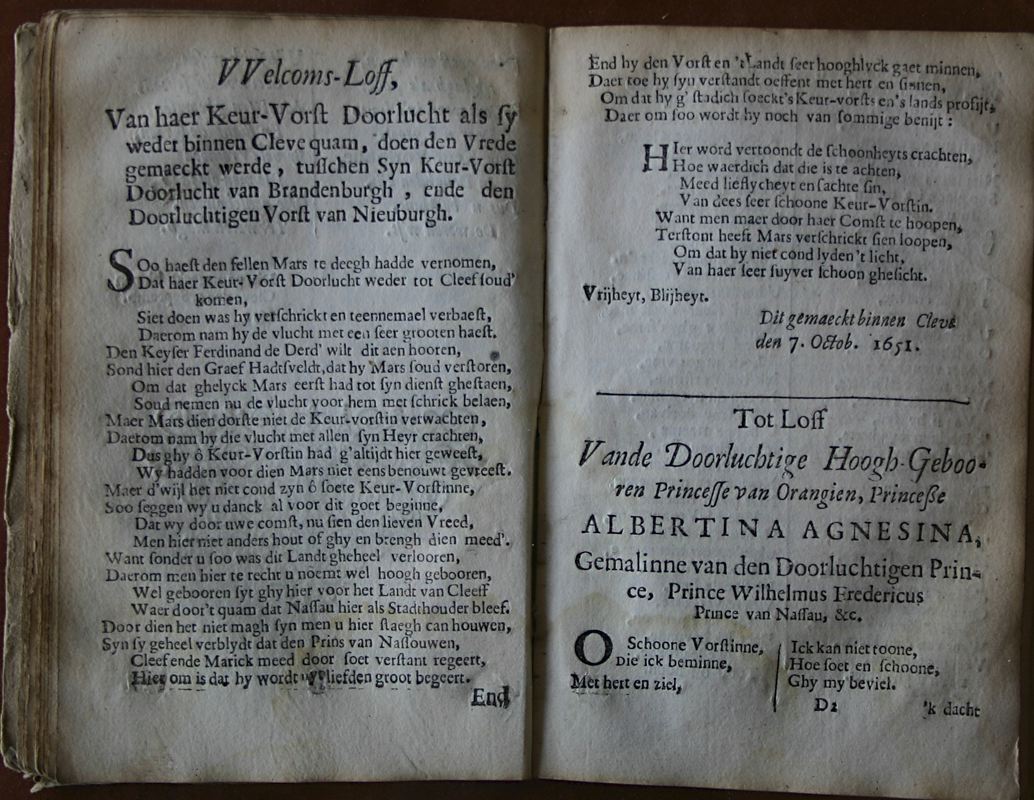 VVelcoms-Loff,
Van haer Keur-Vorst Doorlucht als sy
weder binnen Cleve quam, doen den Vrede
gemaeckt werde, tusschen Syn Keur-Vorst
Doorlucht van Brandenburgh, ende den
Doorluchtigen Vorst van Nieuburgh.
SOo haest den fellen Mars te deegh hadde vernomen,
Dat haer Keur-Vorst Doorlucht weder tot Cleef soud'
komen,
Siet doen was hy verschrickt en teennemael verbaest,
Daerom nam hy de vlucht met een seer grooten haest.
Den Keyser Ferdinand de Derd' wilt dit aen hooren,
Sond hier den Graef Hadtsveldt, dat hy Mars soud verstoren,
Om dat ghelyck Mars eerst had tot syn dienst ghestaen,
Soud nemen nu de vlucht voor hem met schrick belaen,
Maer Mars dien dorste niet de Keur-vorstin verwachten,
Daerom nam hy die vlucht met allen syn Heyr crachten,
Dus ghy ô Keur-Vorstin had g'altijdt hier geweest,
Wy hadden voor dien Mars niet eens benouwt gevreest.
Maer d'wijl het niet cond zyn ô soete Keur-Vorstinne,
Soo seggen wy u danck al voor dit goet beginne,
Dat wy door uwe comst, nu sien den lieven Vreed,
Men hier niet anders hout of ghy en brengh dien meed'.
Want sonder u soo was dit Landt gheheel verlooren,
Daerom men hier te recht u noemt wel hoogh gebooren,
Wel gebooren syt ghy hier voor het Landt van Cleeff
Waer door't quam dat Nassau hier als Stadthouder bleef.
Door dien het niet magh syn men u hier staegh can houwen,
Syn sy geheel verblydt dat den Prins van Nassouwen,
Cleef ende Marick meed door soet verstant regeert,
Hier om is dat hy wordt liefden groot begeert.
End
End hy den Vorst en 't Landt seer hooghlyck gaet minnen,
Daer toe hy syn verstandt oeffent met hert en sinnen,
Om dat hy g' stadich soeckt's Keur-vorsts en's lands profijt,
Daer om soo wordt hy noch van sommige benijt:
HIer word vertoondt de schoonheyts crachten,
Hoe waerdich dat die is te achten,
Meed lieflycheyt en sachte sin,
Van dees seer schoone Keur-Vorstin.
Want men maer door haer Comst te hoopen,
Terstont heeft Mars verschrickt sien loopen,
Om dat hy niet cond lyden't licht,
Van haer seer suyver schoon ghesicht.
Vrijheyt, Blijheyt.
Dit gemaeckt binnen Cleve
den 7. Octob. 1651.
Tot Loff
Vande Doorluchtige Hoogh-Geboo-
ren Princesse van Orangien, Princesse
ALBERTINA AGNESINA,
Gemalinne van den Doorluchtigen Prin-
ce, Prince Wilhelmus Fredericus
Prince van Nassau, &c.
O Schoone Vorstinne,
Die ick beminne,
Met hert en ziel,
Ick kan niet toone,
Hoe soet en schoone,
Ghy my beviel.
D2 'k dacht